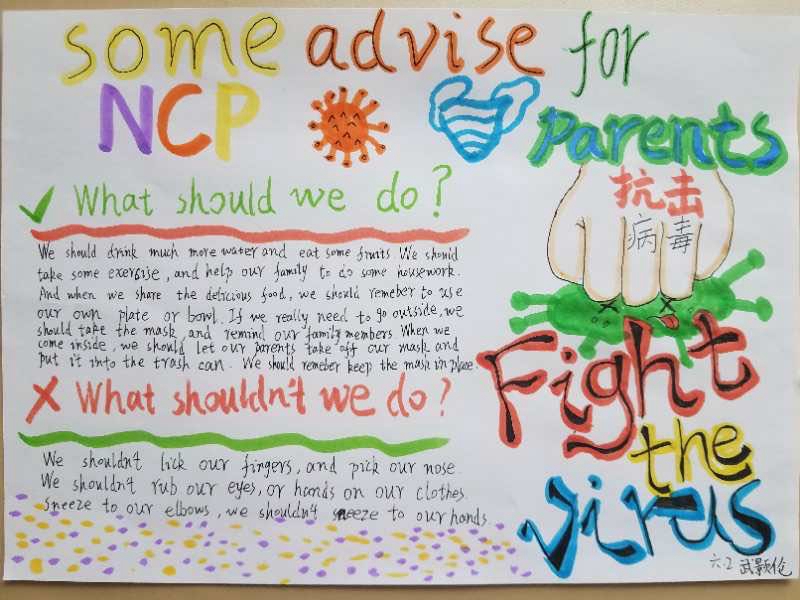 some advise for
NCP
Parents
What should we do?
We should drink much more water and eat some fruits. We should
take some exersise, and help our family to do some housework.
And when we share the delicious food, we should remeber to use
our own plate or bowl. If we really need to go outside, we
should take the mask, and remind our family members. When we
come inside, we should let our parents take off our mask and
put it into the trash can. We should remeber keep the mask in place.
What shouldn't we do?
We shouldn't lick our fingers, and pick our nose.
We shouldn't rub our eyes, or hands on our clothes.
Sneeze to our elbows, we shouldn't sneeze to our hands.
抗击
病毒
Fight
the
virus
六.2 武颢伦